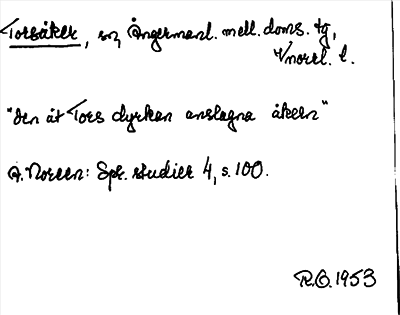 Torsåker, sn, Ångermanl. mell. doms. tg,
Vnorrl. l.
"den åt Tors dyrkan anslagna åkern"
A. Noreen: Spr. studier 4, s. 100.
R.O. 1953